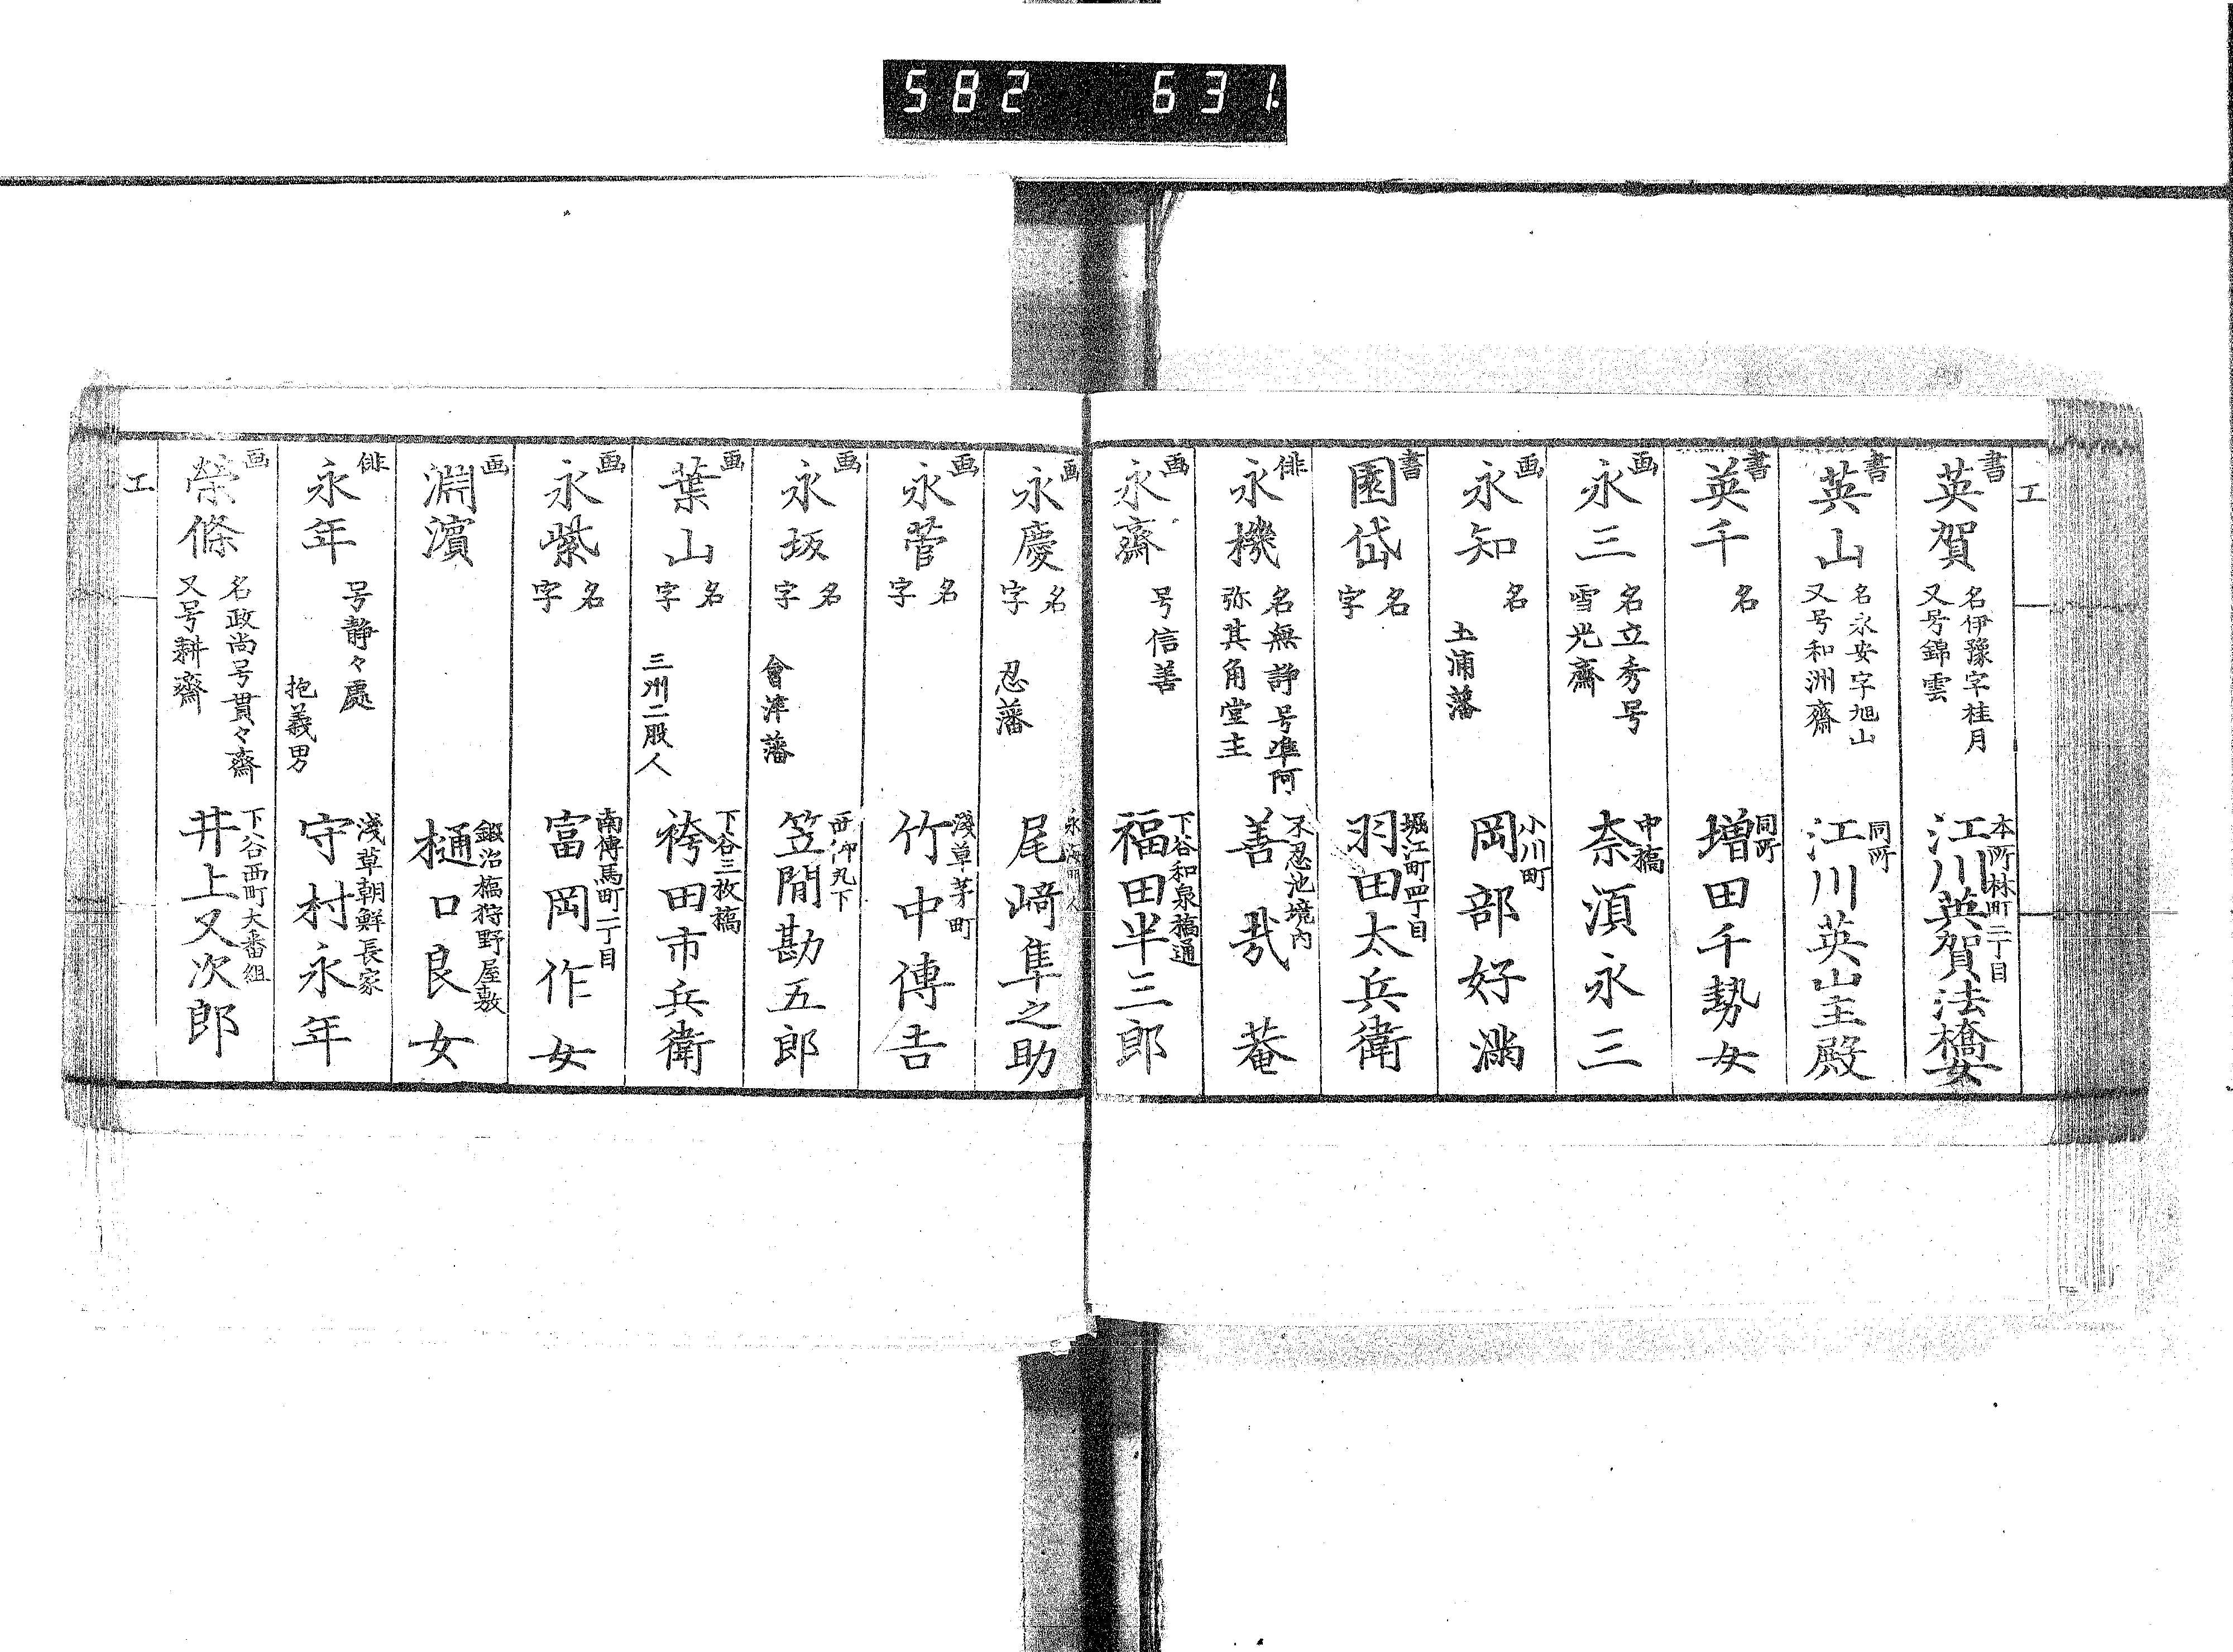 582 631.
エ
書
英賀
名伊豫字桂月
又号錦雲
本所林町二丁目
江川英賀法橋女
書
英山
名永安字旭山
又号和洲齋
同所
江川英山主殿
書
英千
名
同所
増田千勢女
画
永三
名立秀号
雪光齋
中橋
奈湏永三
画
永知
名
土浦藩
小川町
岡部好満
書
園岱
名
字
堀江町四丁目
羽田太兵衛
俳
永機
名無諍号準阿
弥其角堂主
不忍池境内
善哉菴
画
永齋
号信善
下谷和泉橋通
福田半三郎
画
永慶
名
字
忍藩
尾﨑隼之助
画
永菅
名
字
淺草茅町
竹中傳吉
画
永坂
名
字
會津藩
西御丸下
笠間勘五郎
画
葉山
名
字
三州二股人
下谷三枚橋
袴田市兵衛
画
永紫
名
字
南傳馬町二丁目
富岡作女
画
淵濵
鍛冶橋狩野屋敷
樋口良女
俳
永年
号静々處
抱義男
淺草朝鮮長家
守村永年
画
榮條
名政尚号貫々齋
又号耕齋
下谷西町大番組
井上又次郎
エ